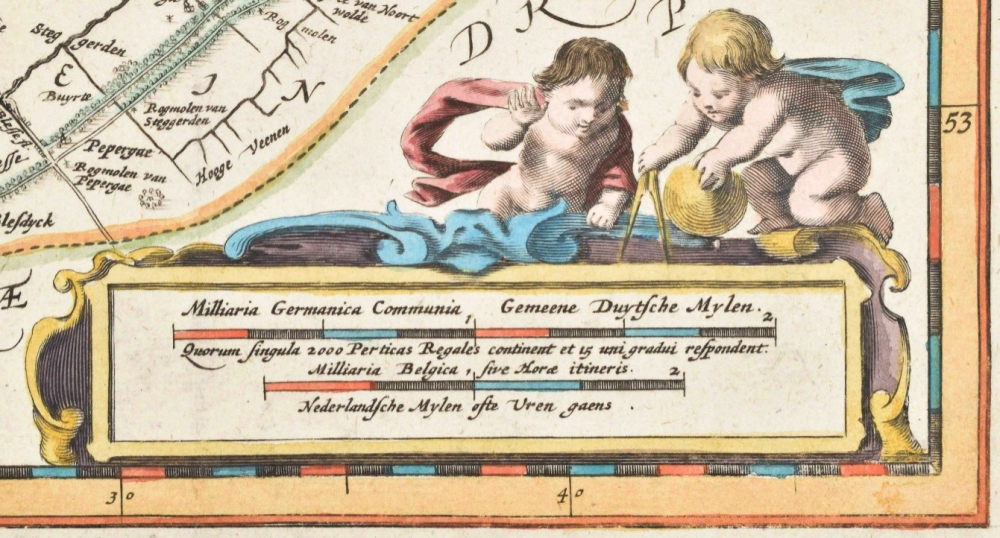 van Noort
wolde
Rog
molen
Steg
gerden
D R P
E
Buyrte
I
N
Rogmolen van
Steggerden
53
Pepergae
Hooge Veenen
Rogmolen van
Pepergae
Blesdyck
Æ
Milliaria Germanica Communia, 1 Gemeene Duytſche Mylen. 2
Quorum ſingula 2000 Perticas Regales continent et 15 uni gradui reſpondent.
Milliaria Belgica, 1 ſive Horæ itineris. 2
Nederlandſche Mylen ofte Vren gaens.
30
40